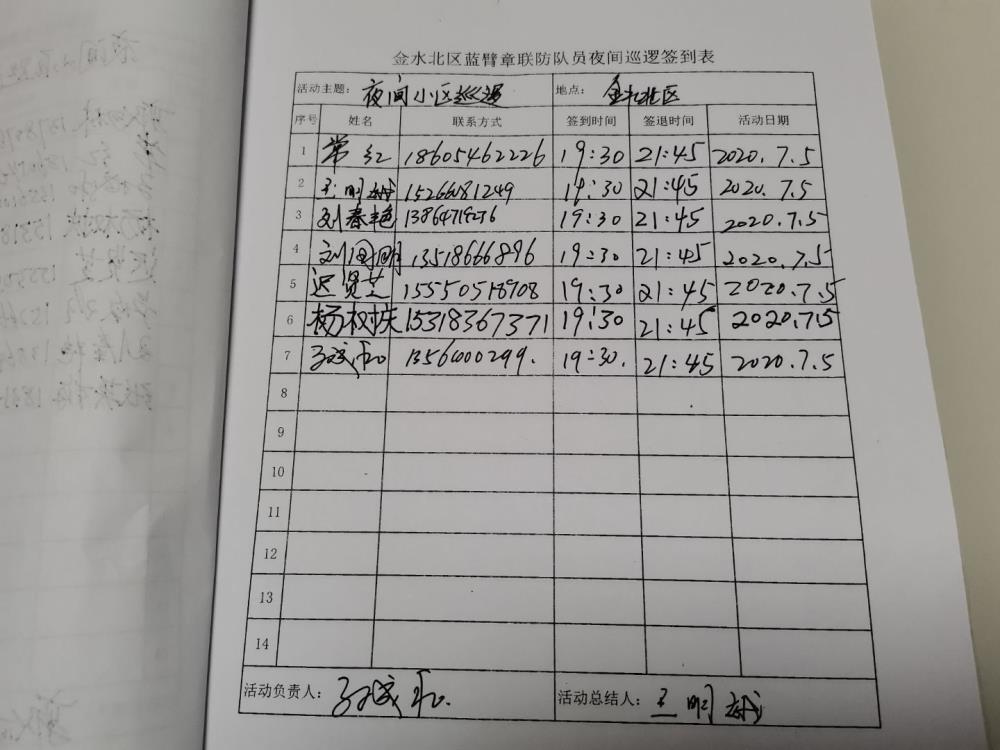 金水北区蓝臂章联防队员夜间巡逻签到表
活动主题: 夜间小区巡逻 地点: 金水北区
序号 姓名 联系方式 签到时间 签退时间 活动日期
1 常红 18605462226 19:30 21:45 2020.7.5
2 王明 15266081249 19:30 21:45 2020.7.5
3 刘春艳 19:30 21:45 2020.7.5
4 刘国明 13518666896 19:30 21:45 2020.7.5
5 迟贤芝 15550518908 19:30 21:45 2020.7.5
6 杨树 15318367371 19:30 21:45 2020.7.5
7 1356400299. 19:30. 21:45 2020.7.5
8
9
10
11
12
13
14
活动负责人: 活动总结人: 王明